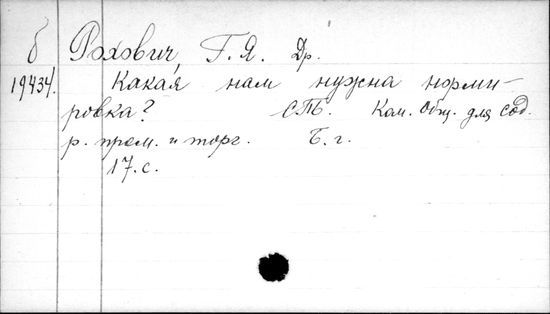 б Рохович, Г. Я. Др.
19434. Какая нам нужна норми-
ровка? СПБ. Ком. общ. для сод.
р. пром. и торг. Б. г.
17. с.